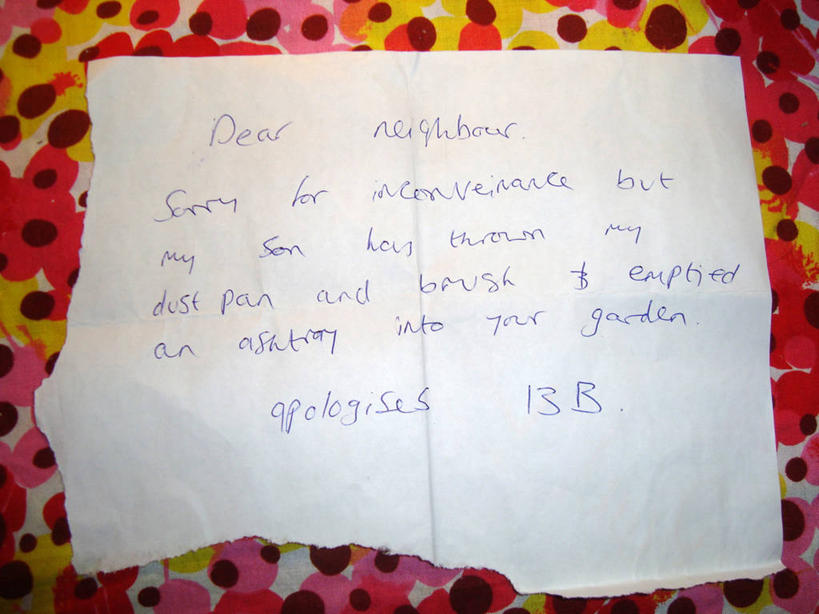 Dear neighbour.
Sorry for inconveinance but
my son has thrown my
dust pan and brush & emptied
an ashtray into your garden.
apologises 13B.